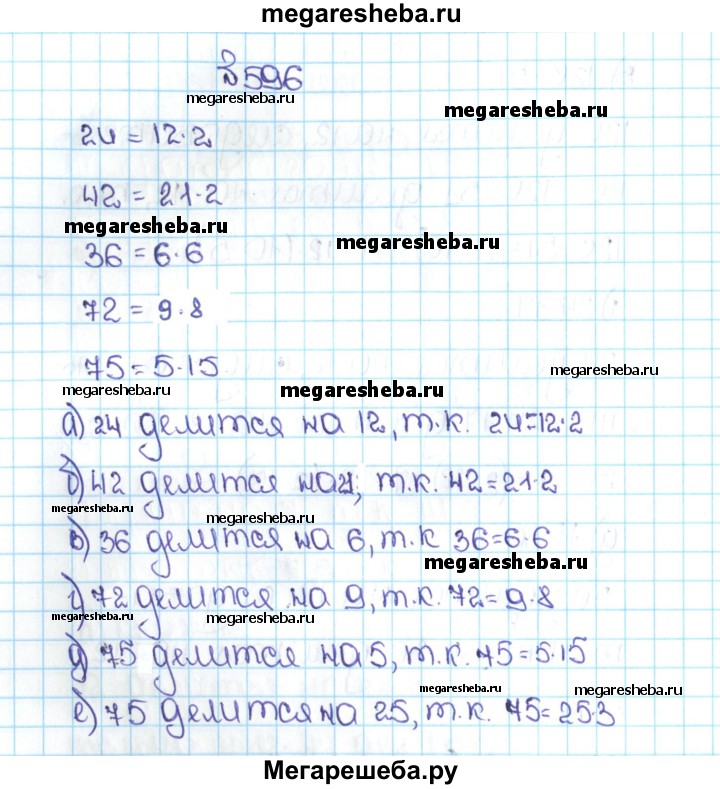 megaresheba.ru
№596
megaresheba.ru
megaresheba.ru
24 = 12·2
42 = 21·2
megaresheba.ru
megaresheba.ru
36 = 6·6
72 = 9·8
75 = 5·15
megaresheba.ru
megaresheba.ru
megaresheba.ru
а) 24 делится на 12, т.к. 24=12·2
б) 42 делится на 21, т.к. 42=21·2
megaresheba.ru
в) 36 делится на 6, т.к 36=6·6
megaresheba.ru
г) 72 делится на 9, т.к. 72=9·8
megaresheba.ru
megaresheba.ru
д) 75 делится на 5, т.к. 75=5·15
megaresheba.ru
е) 75 делится на 25, т.к. 75=25·3
Мегарешеба.ру